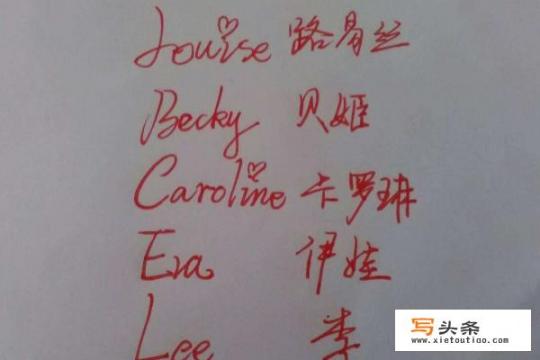 Louise 路易丝
Becky 贝姬
Caroline 卡罗琳
Eva 伊娃
Lee 李
写头条
www.xietoutiao.com